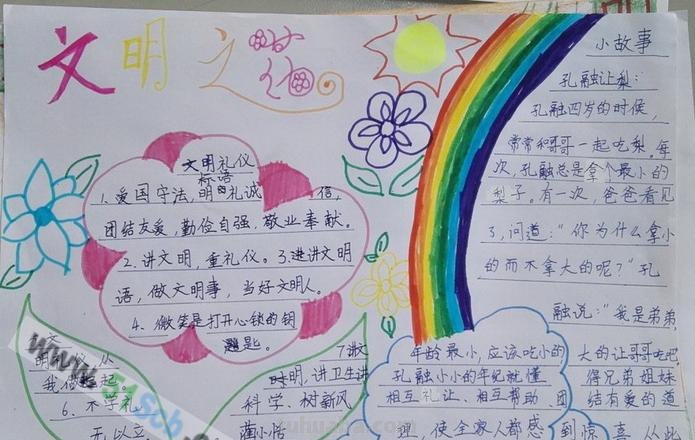 文明之花
文明礼仪
标语
1. 爱国守法,明礼诚信,
团结友爱,勤俭自强,敬业奉献。
2. 讲文明,重礼仪。3.进讲文明
语,做文明事,当好文明人。
4. 微笑是打开心锁的钥
匙。
我做起。
6. 不学礼,
无以立
7讲文
明,讲卫生讲
科学、树新风
小故事
孔融让梨:
孔融四岁的时候,
常常和哥哥一起吃梨。每
次,孔融总是拿个最小的
梨子。有一次,爸爸看见
了,问道:“你为什么拿小
的而不拿大的呢?”孔
融说:“我是弟弟,
年龄最小,应该吃小的 大的让哥哥吃吧
孔融小小的年纪就懂 得兄弟姐妹
相互礼让、相互帮助、团 结有爱的道
理,使全家人都感到惊喜,从此